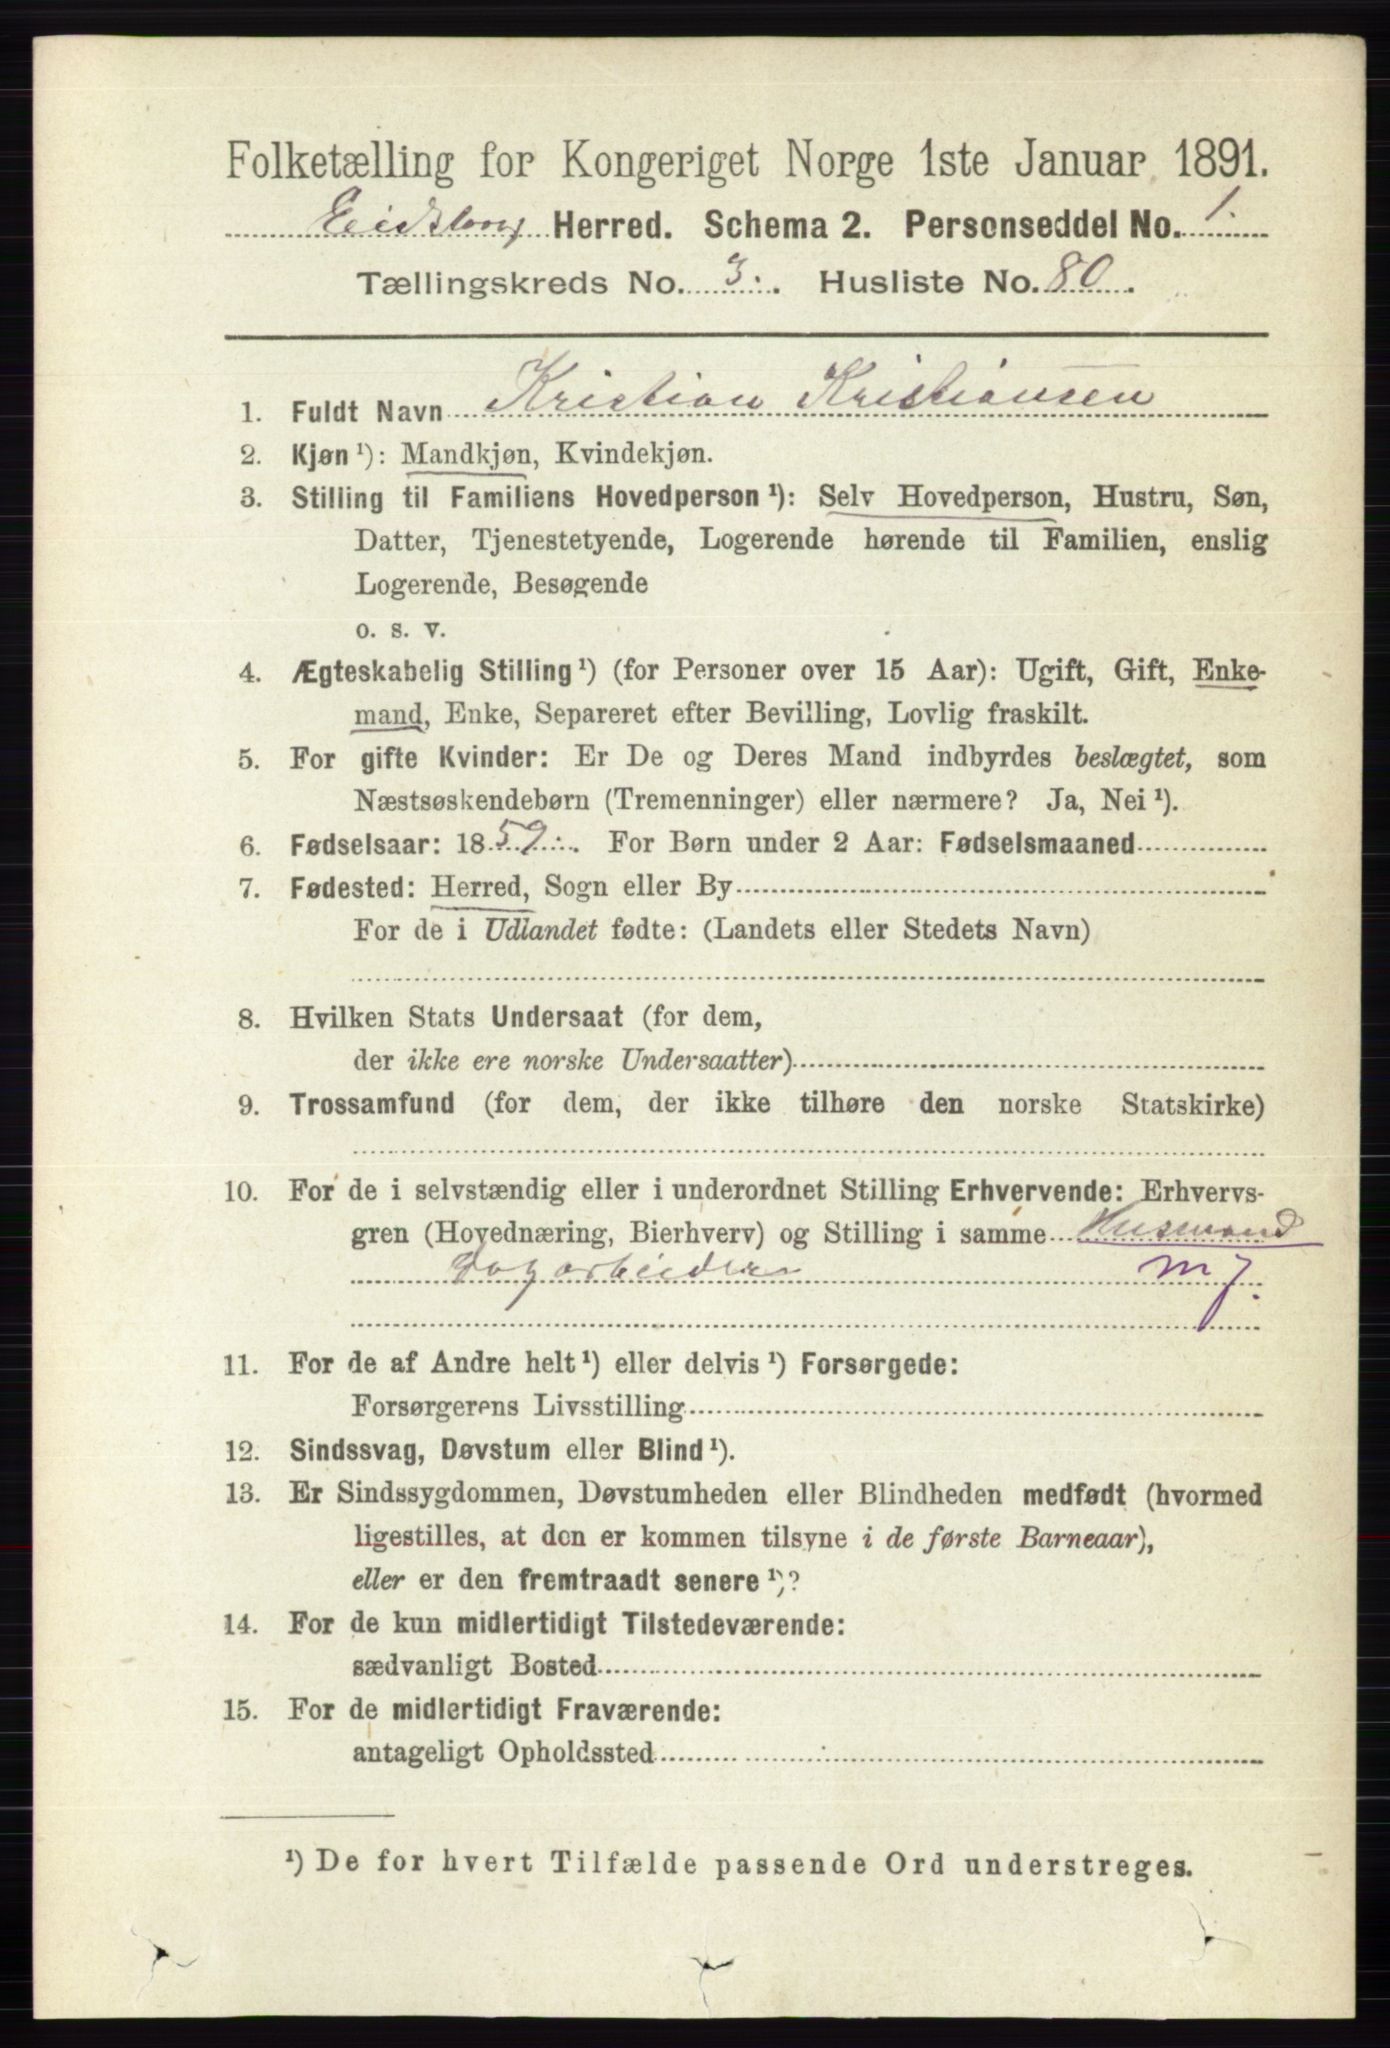 Folketælling for Kongeriget Norge 1ste Januar 1891.
Eidsberg Herred. Schema 2. Personseddel No. 1.
Tællingskreds No. 3. Husliste No. 80.
1. Fuldt Navn Kristian Kristiansen
2. Kjøn ¹): Mandkjøn, Kvindekjøn.
3. Stilling til Familiens Hovedperson ¹): Selv Hovedperson, Hustru, Søn,
Datter, Tjenestetyende, Logerende hørende til Familien, enslig
Logerende, Besøgende
o. s. v.
4. Ægteskabelig Stilling ¹) (for Personer over 15 Aar): Ugift, Gift, Enke-
mand, Enke, Separeret efter Bevilling, Lovlig fraskilt.
5. For gifte Kvinder: Er De og Deres Mand indbyrdes beslægtet, som
Næstsøskendebørn (Tremenninger) eller nærmere? Ja, Nei ¹).
6. Fødselsaar: 1859. For Børn under 2 Aar: Fødselsmaaned
7. Fødested: Herred, Sogn eller By
For de i Udlandet fødte: (Landets eller Stedets Navn)
8. Hvilken Stats Undersaat (for dem,
der ikke ere norske Undersaatter)
9. Trossamfund (for dem, der ikke tilhøre den norske Statskirke)
10. For de i selvstændig eller i underordnet Stilling Erhvervende: Erhvervs-
gren (Hovednæring, Bierhverv) og Stilling i samme Husmand
Dagarbeider m j.
11. For de af Andre helt ¹) eller delvis ¹) Forsørgede:
Forsørgerens Livsstilling
12. Sindssvag, Døvstum eller Blind ¹).
13. Er Sindssygdommen, Døvstumheden eller Blindheden medfødt (hvormed
ligestilles, at den er kommen tilsyne i de første Barneaar),
eller er den fremtraadt senere ¹)?
14. For de kun midlertidigt Tilstedeværende:
sædvanligt Bosted
15. For de midlertidigt Fraværende:
antageligt Opholdssted
¹) De for hvert Tilfælde passende Ord understreges.